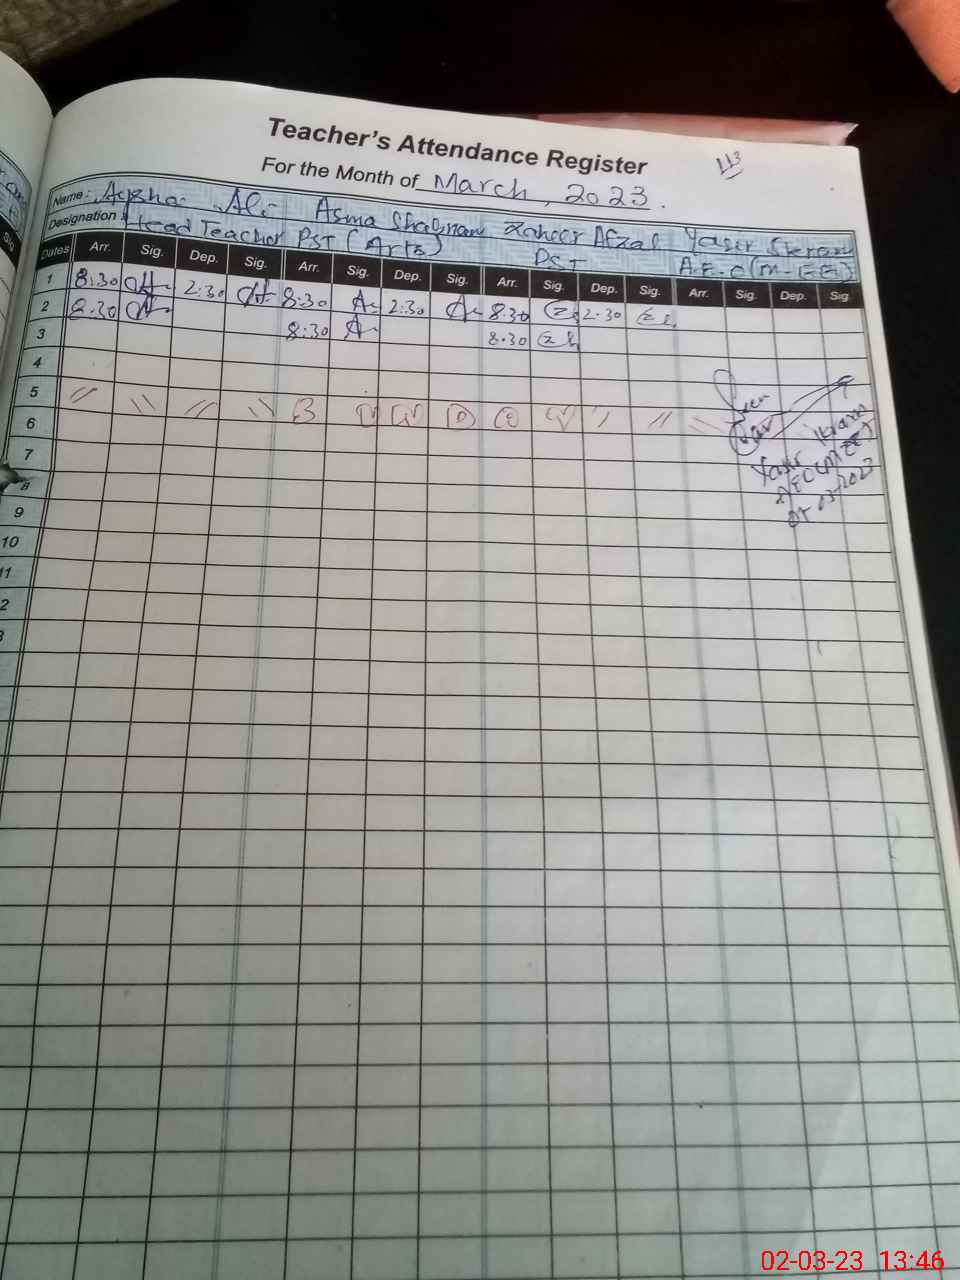 Teacher's Attendance Register
113
For the Month of March, 2023.
Name: Aysha Ali Asma Shabnam Zaheer Afzal Yasir Ikram
Designation: Head Teacher PST (Arts) PST A.E.O (M-EE)
Dates Arr. Sig. Dep. Sig. Arr. Sig. Dep. Sig. Arr. Sig. Dep. Sig. Arr. Sig. Dep. Sig.
1 8:30 2:30 8:30 2:30 8:30 2:30
2 8:30 8:30 8:30
3
4
5
6 S U N D A Y
7
8
9
10
11
2
3
Seen
Yasir Ikram
AEO (M-EE)
03-2023
02-03-23 13:46